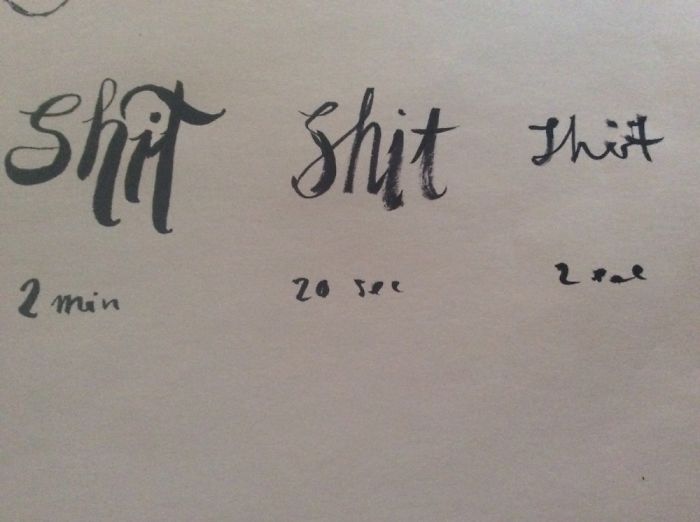 Shit Shit Shit
2 min 20 sec 2 sec